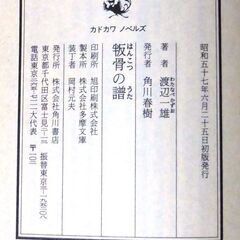 カドカワ ノベルズ
叛骨の譜
はんこつ
うた
昭和五十七年六月二十五日初版発行
著者 渡辺一雄
わたなべかずお
発行者 角川春樹
印刷所 旭印刷株式会社
製本所 株式会社多摩文庫
装丁者 岡村元夫
発行所 株式会社角川書店
東京都千代田区富士見二ノ十三
振替東京三ー一九五二〇八
〒一〇二